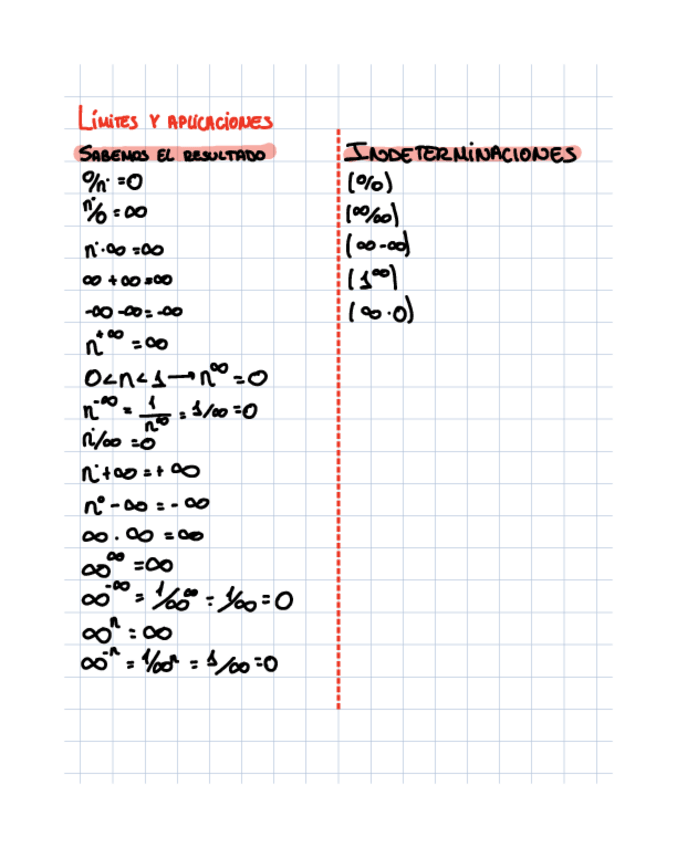 LÍMITES Y APLICACIONES
SABEMOS EL RESULTADO
0/nº = 0
nº/0 = ∞
nº·∞ = ∞
∞ + ∞ = ∞
-∞ -∞ = -∞
n^+∞ = ∞
0<n<1 → n^∞ = 0
n^-∞ = 1/n^∞ = 1/∞ = 0
nº/∞ = 0
nº + ∞ = + ∞
nº - ∞ = - ∞
∞ · ∞ = ∞
∞^∞ = ∞
∞^-∞ = 1/∞^∞ = 1/∞ = 0
∞^n = ∞
∞^-n = 1/∞^n = 1/∞ = 0
INDETERMINACIONES
(0/0)
(∞/∞)
(∞-∞)
(1^∞)
(∞·0)